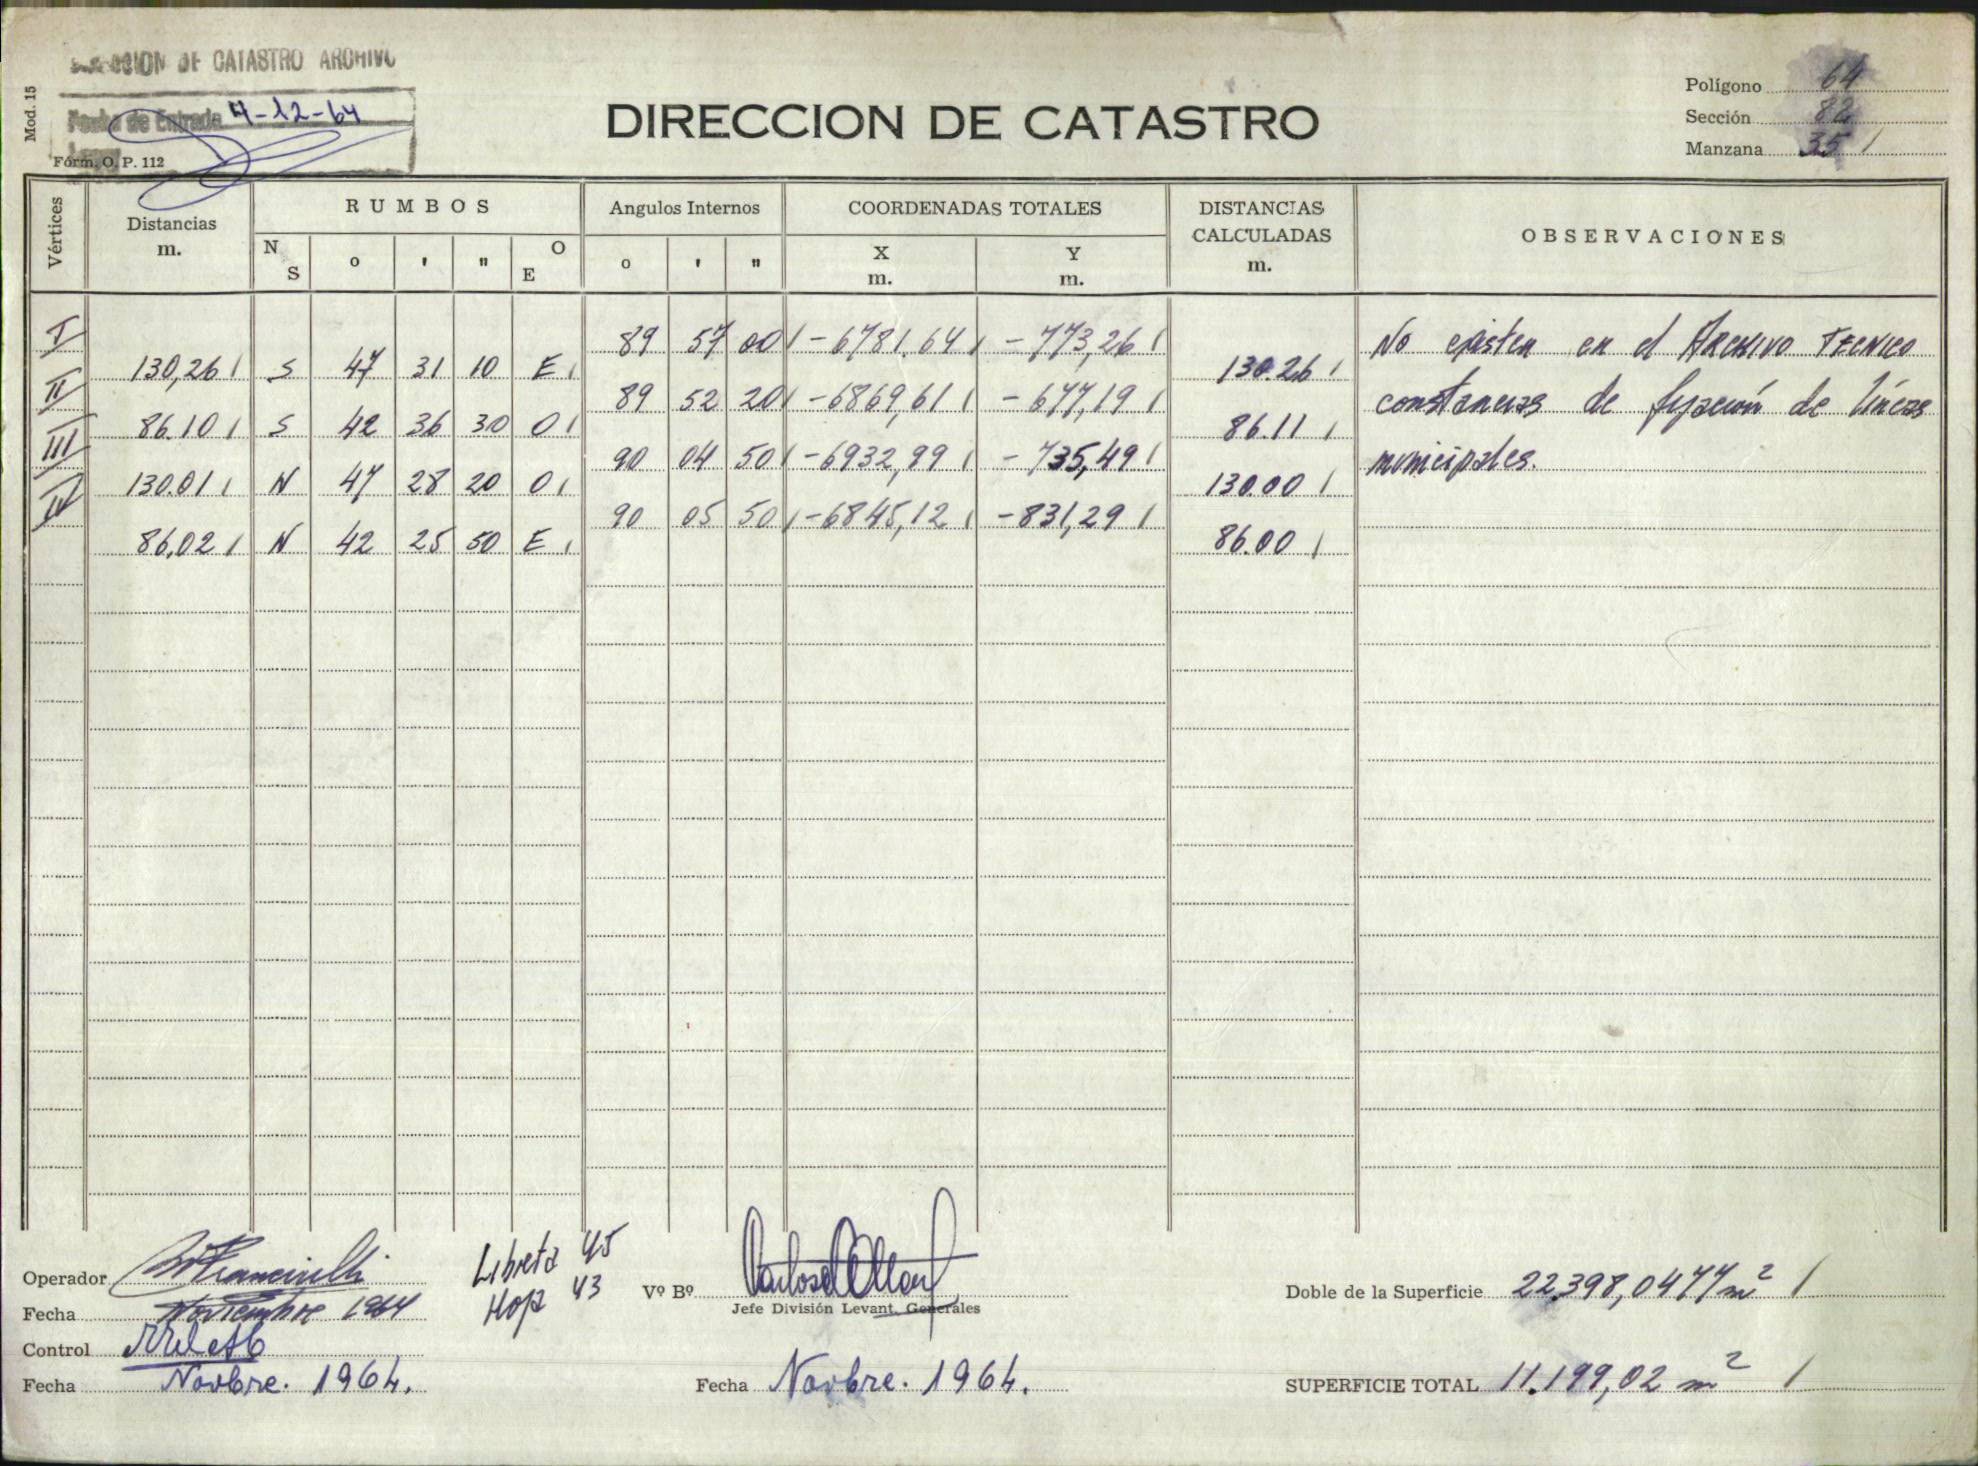 DIRECCION DE CATASTRO ARCHIVO
Mod. 15
Fecha de Entrada 7-12-64
Fórm. O. P. 112
DIRECCION DE CATASTRO
Polígono 64
Sección 82
Manzana 35
Vértices
Distancias
m.
RUMBOS
N S ° ' " O E
Angulos Internos
° ' "
COORDENADAS TOTALES
X
m.
Y
m.
DISTANCIAS
CALCULADAS
m.
OBSERVACIONES
I 89 57 00 -6781,64 -773,26
130,26 S 47 31 10 E 130.26
II 89 52 20 -6869,61 -677,19
86.10 S 42 36 30 O 86.11
III 90 04 50 -6932,99 -735,49
130.01 N 47 28 20 O 130.00
IV 90 05 50 -6845,12 -831,29
86,02 N 42 25 50 E 86.00
No existen en el ARCHIVO TECNICO
constancias de fijación de líneas
municipales.
Operador
Fecha Noviembre 1964
Control
Fecha Novbre. 1964.
Libreta 45
Hoja 43
Vº Bº
Jefe División Levant. Generales
Fecha Novbre. 1964.
Doble de la Superficie 22.398,0477 m²
SUPERFICIE TOTAL 11.199,02 m²